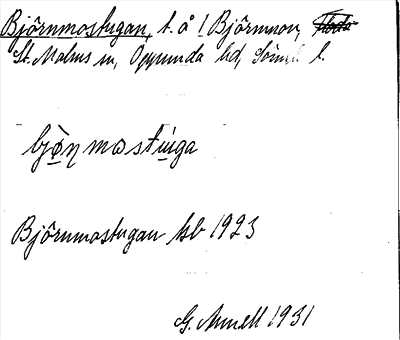 Björnmostugan, t. å 1 Björnmon,
St. Malms sn, Oppunda hd, Sörml. l.
bjò̤ŋmostu̇ga
Björnmostugan hb 1923
G. Annell 1931